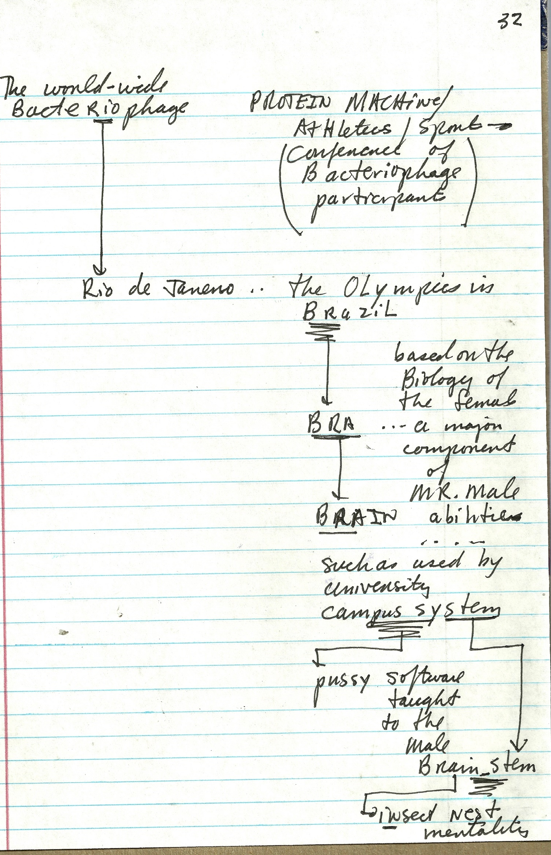 32
The world-wide
BacteRiophage
PROTEIN MACHINE/
AtHletics / Sport
(Conference of
Bacteriophage
participants)
Rio de Janeiro .. the OLympics in
BRaziL
based on the
Biology of
the female
BRA ... a major
component
of
MR. Male
BRAIN abilities
.....
such as used by
university
campus system
pussy software
taught
to the
male
Brain_stem
insect Nest
mentality